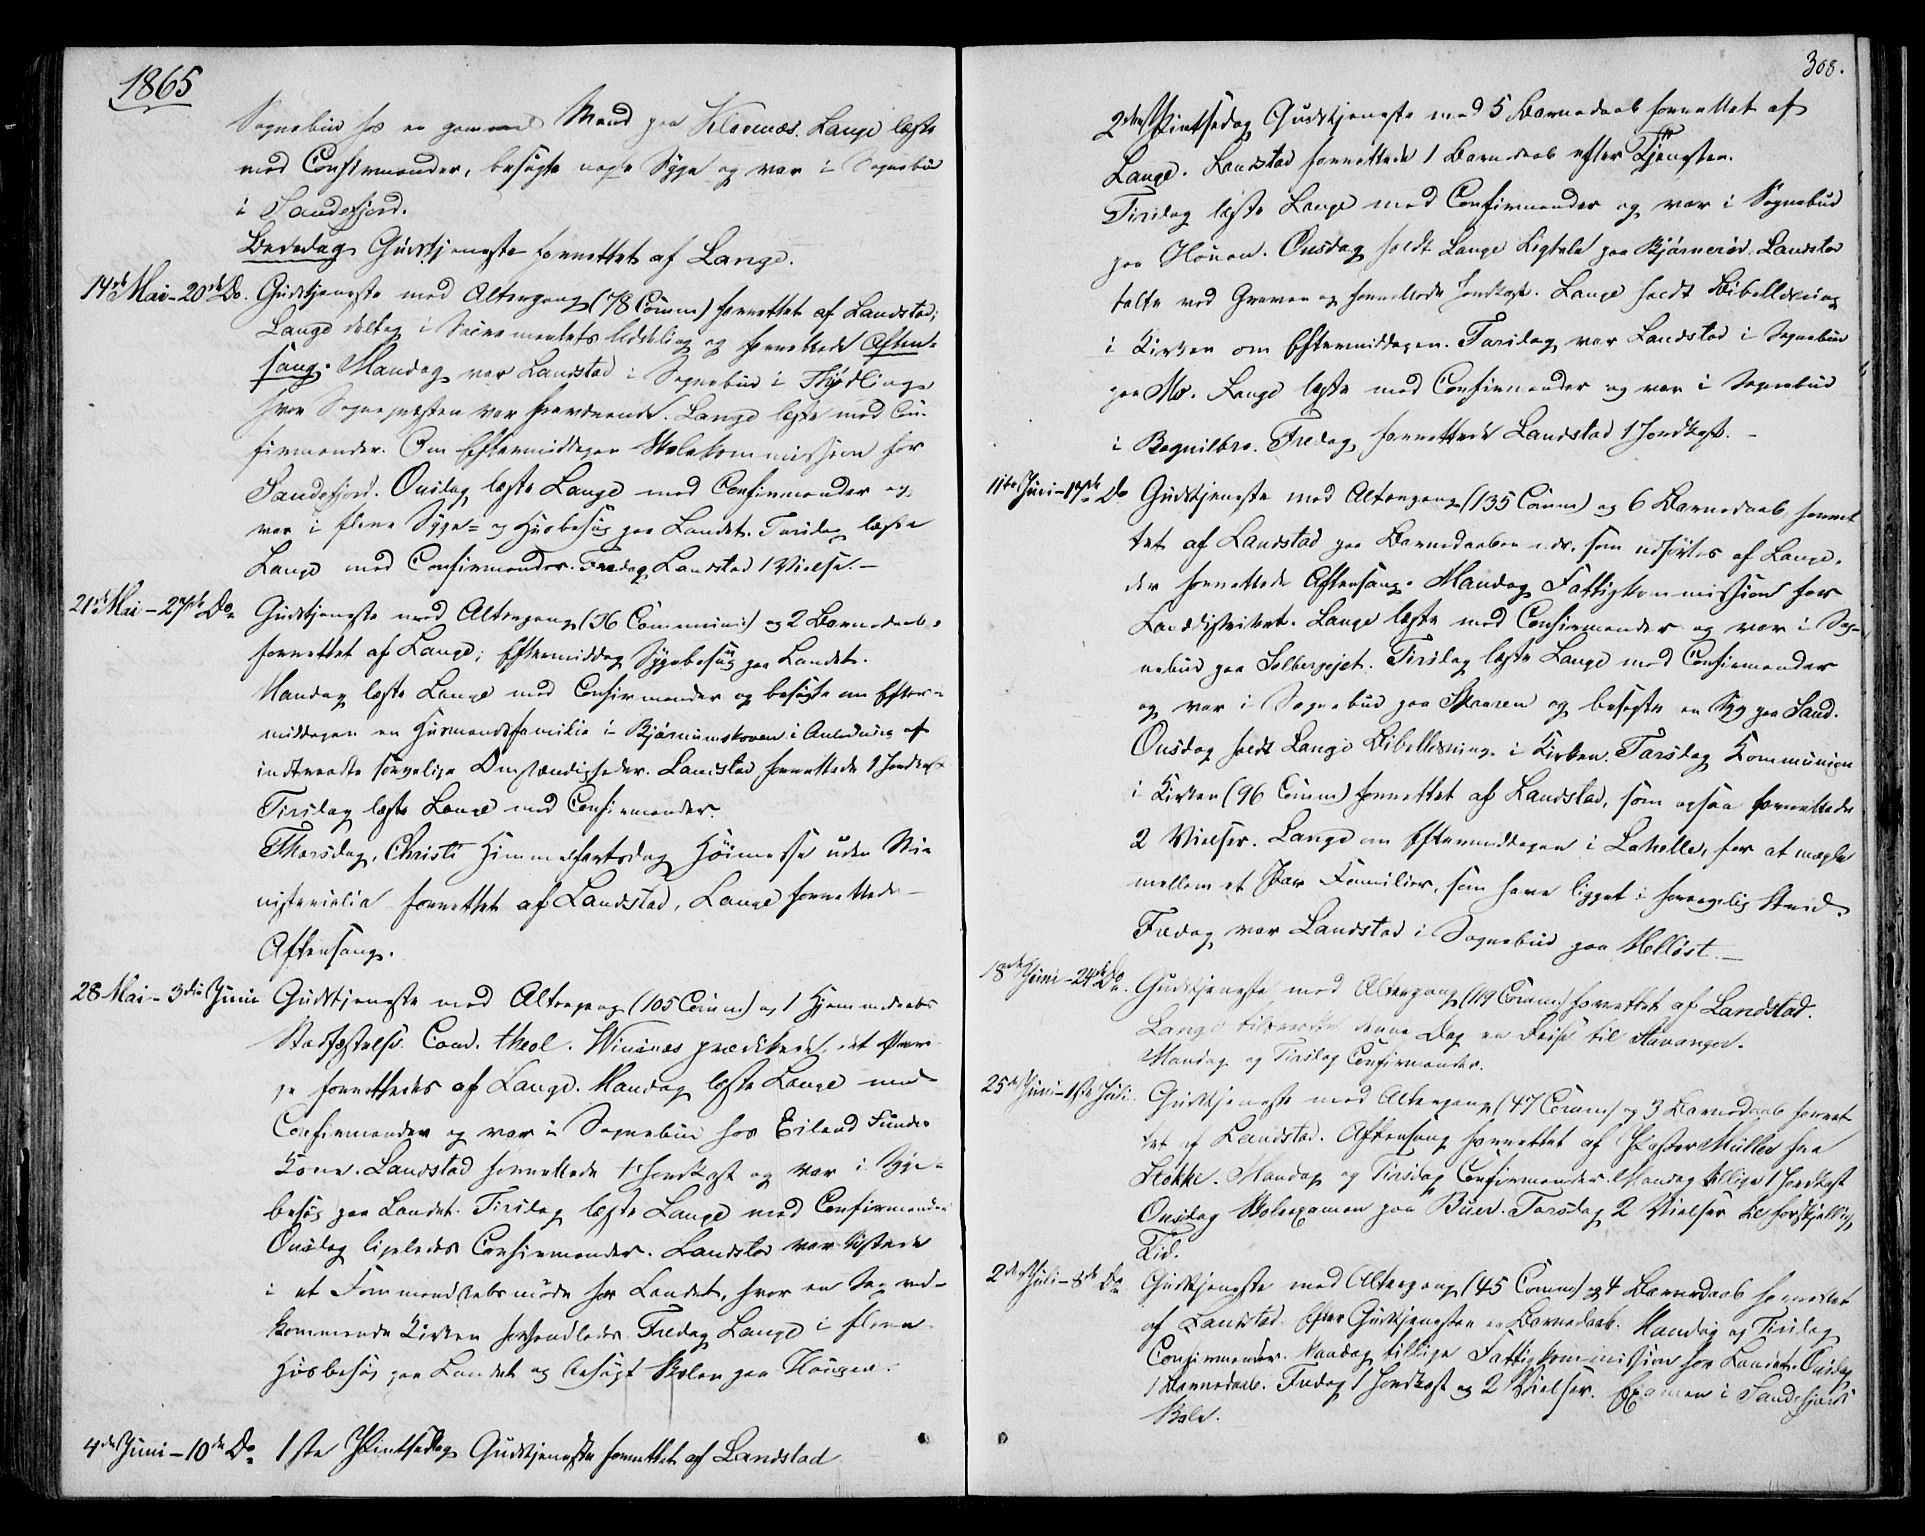 1865
Sognebud hos en gammel Mand paa Klavenæs. Lange læste
med Confirmander, besøgte nogle Syge og var i Sognebud
i Sandefjord.
Bededag Gudstjeneste forrettet af Lange.
14de Mai – 20de Do. Gudstjeneste med Altergang (78 Comm) forrettet af Landstad;
Lange deltog i Sacramentets Uddeling og forrettede Aften-
sang. Mandag var Landstad i Sognebud i
hvor Sognepræsten var fraværende. Lange læste med Con-
firmander. Om Eftermiddagen Skolekommission for
Sandefjord. Onsdag læste Lange med Confirmander og
var i flere Syge- og Husbesøg paa Landet. Torsdag læste
Lange med Confirmander. Fredag Landstad 1 Vielse. –
21de Mai – 27de Do. Gudstjeneste med Altergang (36 Communi:) og 2 Barnedaab,
forrettet af Lange; Eftermiddag Sygebesøg paa Landet.
Mandag læste Lange med Confirmander og besøgte om Efter-
middagen en Husmandsfamilie i Bjørnumskoven i Anledning af
indtraadte sørgelige Omstændigheder. Landstad forrettede 1 Jordkast
Tirsdag læste Lange med Confirmander.
Thorsdag, Christi Himmelfartsdag Høimesse uden Mi-
nisterialia forrettet af Landstad, Lange forrettede
Aftensang.
28 Mai – 3die Juni Gudstjeneste med Altergang (105 Comm) og 1 Hjemmedaabs
Stadfæstelse. Cand. theol. prædikede, det Øvri-
ge forrettedes af Lange. Mandag læste Lange med
Confirmander og var i Sognebud hos Eilerd Sundes
Kone. Landstad forrettede 1 Jordkast og var i Syge-
besøg paa Landet. Tirsdag læste Lange med Confirmander
Onsdag ligeledes Confirmander. Landstad var tilstede
i et Formandskabsmøde for Landet, hvor en Sag ved-
kommende Kirken forhandledes. Fredag Lange i flere
Husbesøg paa Landet og besøgt Skolen paa Haugen.
4de Juni – 10de Do. 1ste Pintsedag Gudstjeneste forrettet af Landstad
308.
2den Pintsedag Gudstjeneste med 5 Barnedaab forrettet af
Lange. Landstad forrettede 1 Barnedaab efter Tjenesten.
Tirsdag læste Lange med Confirmander og var i Sognebud
paa Houen. Onsdag holdt Lange Ligtale paa Bjørnerød. Landstad
talte ved Graven og forrettede Jordkast. Lange holdt Bibellæsning
i Kirken om Eftermiddagen. Torsdag var Landstad i Sognebud
paa Mo. Lange læste med Confirmander og var i Sognebud
i. Fredag forrettede Landstad 1 Jordkast. –
11te Juni – 17de Do Gudstjeneste med Altergang (135 Comm) og 6 Barnedaab forret-
tet af Landstad paa Barnedaaben nær, som udførtes af Lange,
der forrettede Aftensang. Mandag Fattigkommission for
Landdistriktet. Lange læste med Confirmander og var i Sog-
nebud paa. Tirsdag læste Lange med Confirmander
og var i Sognebud paa og besøgte en Syg paa Sand.
Onsdag holdt Lange Bibellæsning i Kirken. Torsdag Kommunion
i Kirken (96 Comm) forrettet af Landstad, som ogsaa forrettede
2 Vielser. Lange om Eftermiddagen i Lahelle, for at mægle
mellem et Par Familier, som have ligget i forargelig Strid.
Fredag var Landstad i Sognebud paa Melløst. –
18de Juni – 24de Do. Gudstjeneste med Altergang (119 Comm) forrettet af Landstad.
Lange tiltraadte denne Dag en Reise til Stavanger.
Mandag og Tirsdag Confirmander.
25de Juni – 1ste Juli. Gudstjeneste med Altergang (47 Comm) og 3 Barnedaab forret-
tet af Landstad. Aftensang forrettet af Pastor Müller fra
Stokke. Mandag og Tirsdag Confirmander. Mandag tillige 1 Jordkast
Onsdag Skoleexamen paa Buer. Torsdag 2 Vielser til forskjellig
Tid.
2den Juli – 8de Do. Gudstjeneste med Altergang (45 Comm) og 4 Barnedaab forrettet
af Landstad. Efter Gudstjenesten en Barnedaab. Mandag og Tirsdag
Confirmander. Mandag tillige Fattigkommission for Landet. Onsdag
1 Barnedaab. Fredag 1 Jordkast og 2 Vielser. Examen i Sandefjords
Skole.